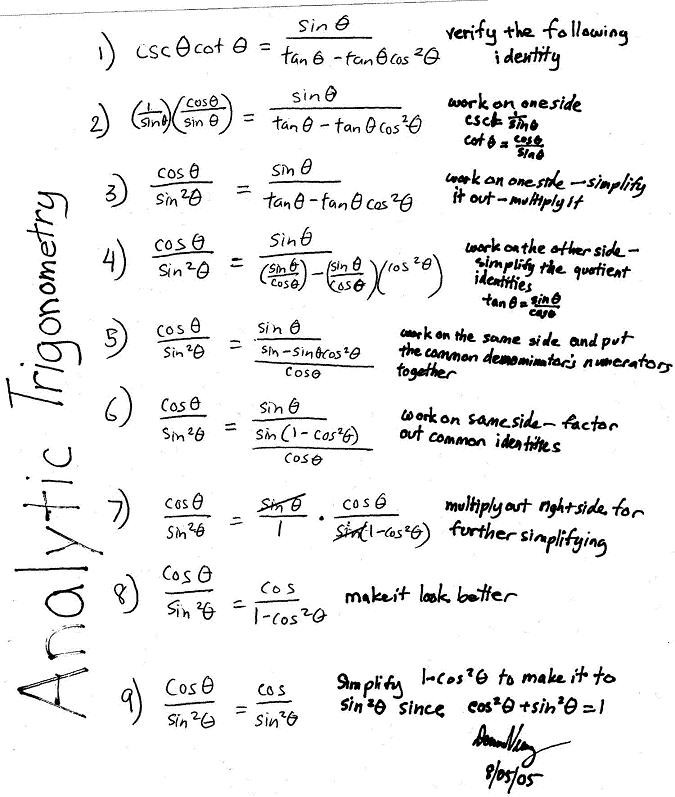 Analytic Trigonometry
1) cscθcot θ = sin θ / tan θ - tan θ cos²θ verify the following
identity
2) (1/sinθ)(cosθ/sin θ) = sin θ / tan θ - tan θ cos²θ work on one side
csc = 1/sin θ
cot θ = cosθ/sinθ
3) cos θ / sin²θ = sin θ / tan θ - tan θ cos²θ work on one side - simplify
it out - multiply it
4) cos θ / sin²θ = sin θ / (sin θ/cosθ) - (sin θ/cosθ)(cos²θ) work on the other side -
simplify the quotient
identities
tan θ = sinθ/cosθ
5) cos θ / sin²θ = sin θ / sin - sinθcos²θ / cosθ work on the same side and put
the common denominator's numerators
together
6) cosθ / sin²θ = sin θ / sin (1 - cos²θ) / cosθ work on same side - factor
out common identities
7) cosθ / sin²θ = sin θ / 1 · cos θ / sin(1-cos²θ) multiply out right side for
further simplifying
8) cos θ / sin²θ = cos / 1-cos²θ make it look better
9) cosθ / sin²θ = cos / sin²θ Simplify 1-cos²θ to make it to
sin²θ since cos²θ + sin²θ = 1
8/05/05